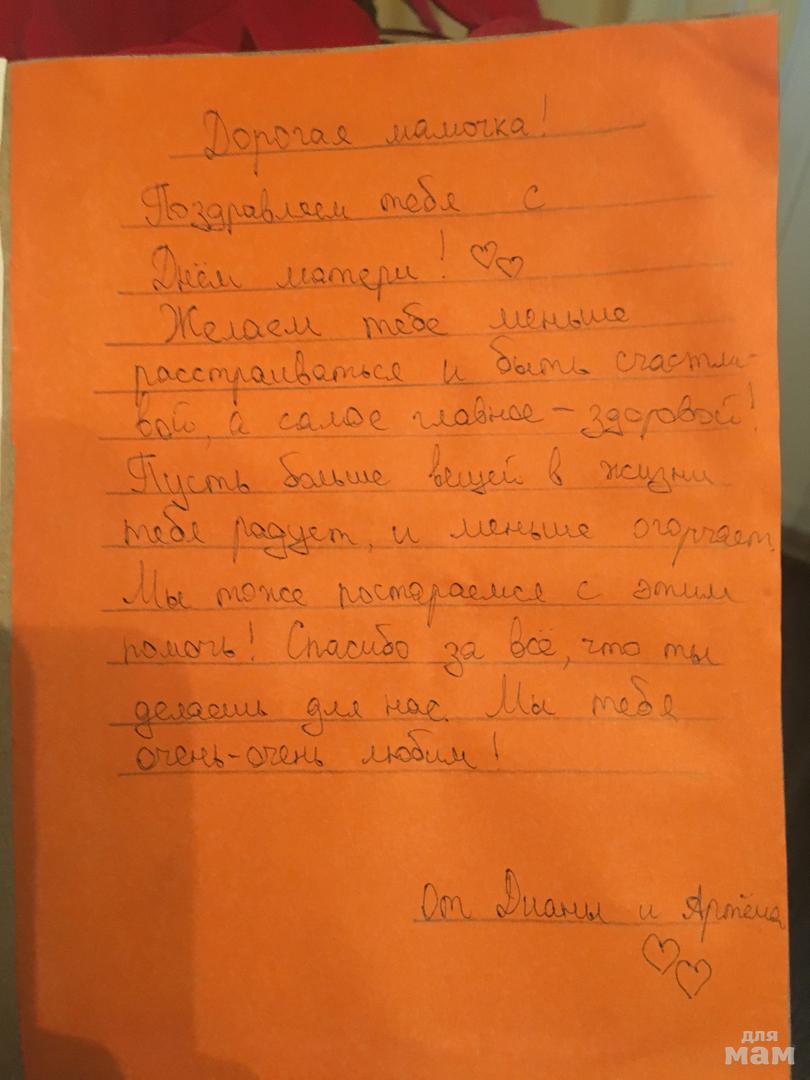 Дорогая мамочка!
Поздравляем тебя с
Днём матери! ♡♡
Желаем тебе меньше
расстраиваться и быть счастли-
вой, а самое главное - здоровой!
Пусть больше вещей в жизни
тебя радует, и меньше огорчает.
Мы тоже постараемся с этим
помочь! Спасибо за всё, что ты
делаешь для нас. Мы тебя
очень-очень любим!
От Дианы и Артёма
♡♡
для
мам